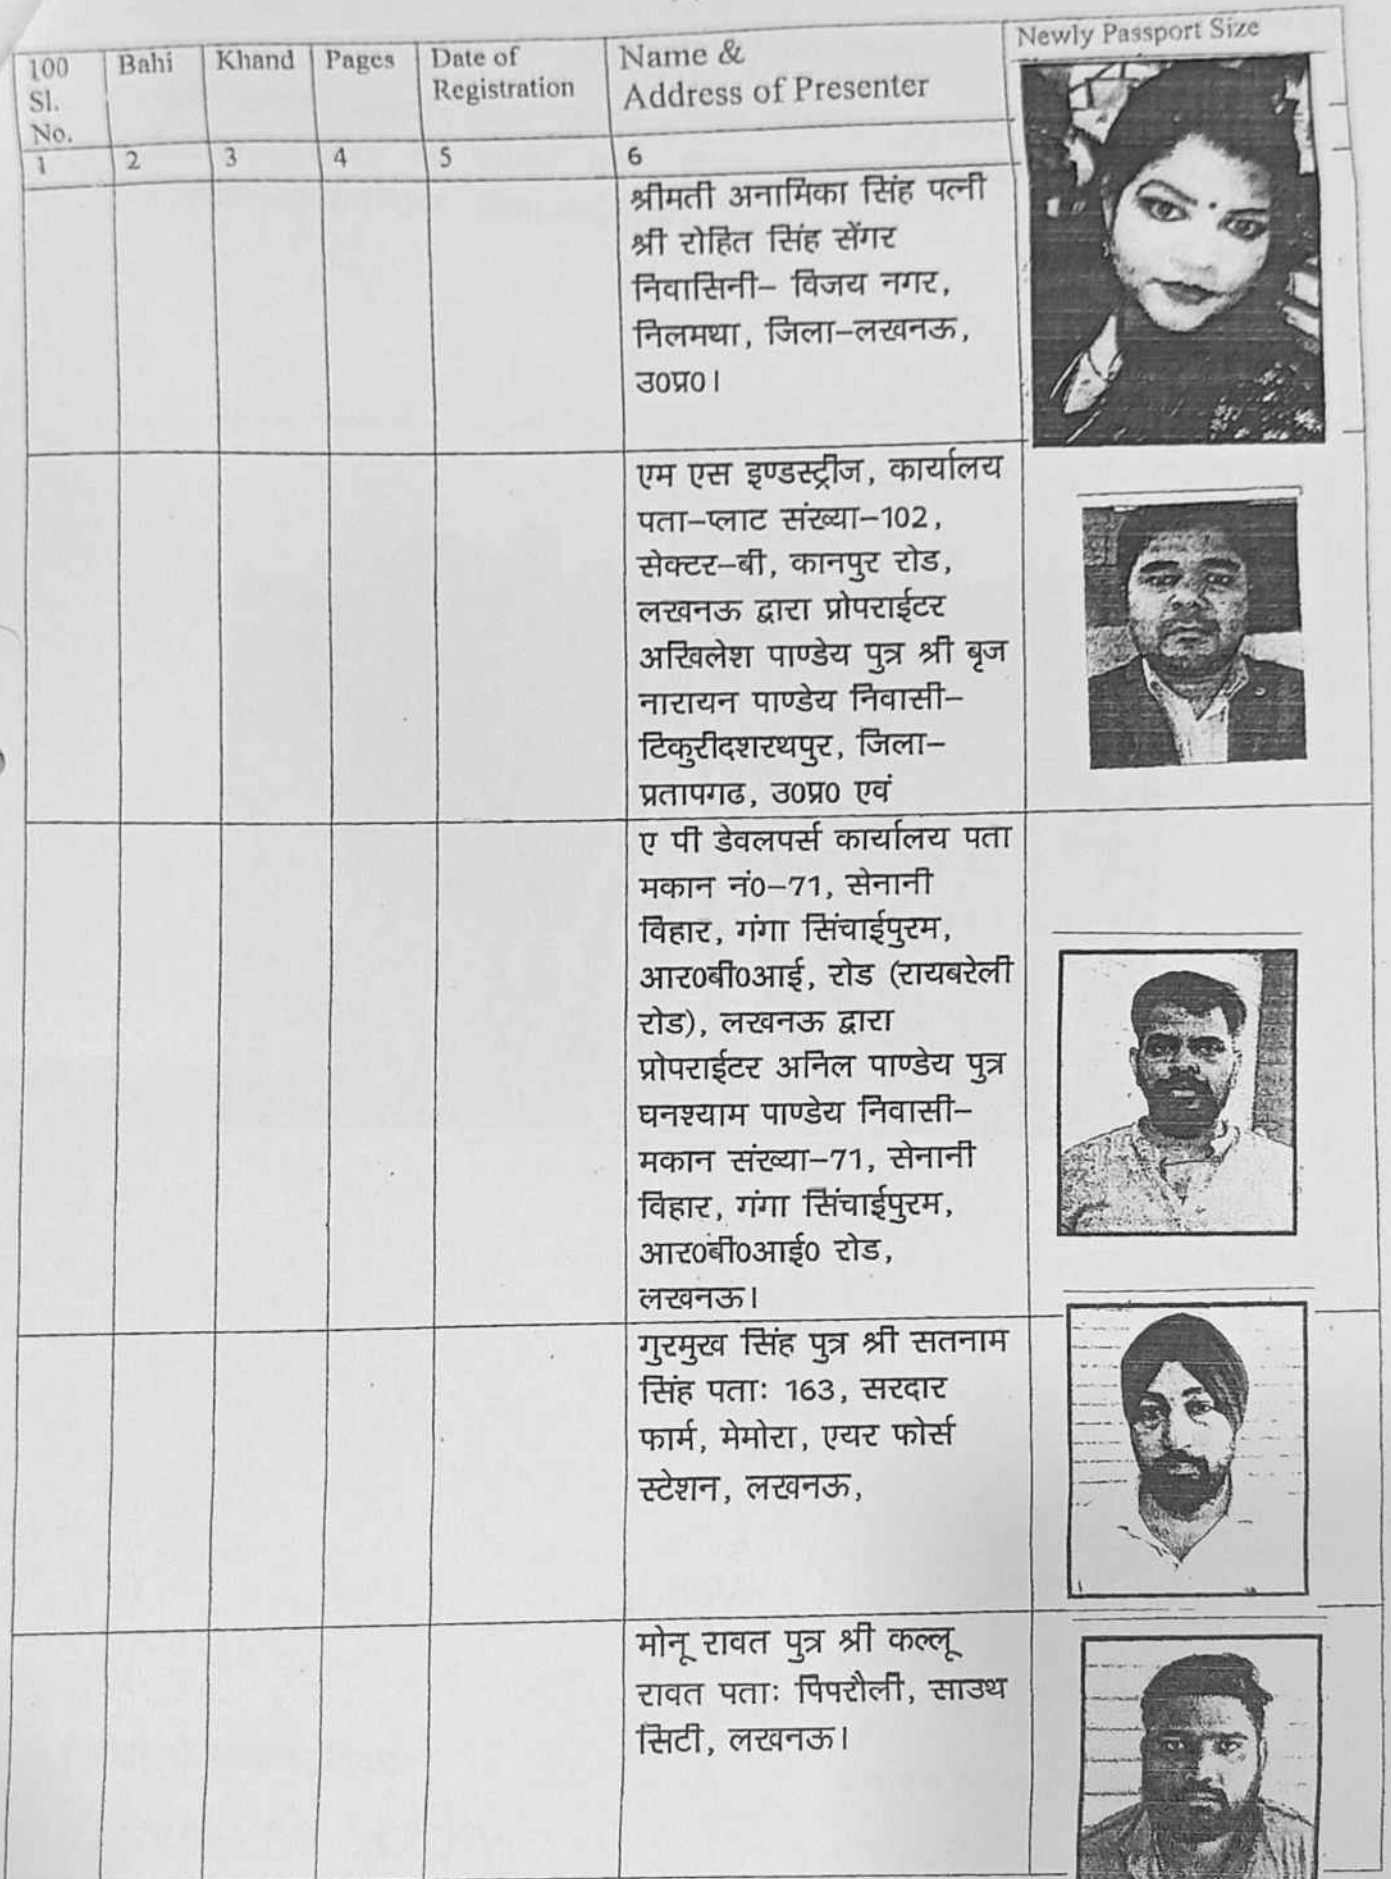 100 Sl. No.
Bahi
Khand
Pages
Date of Registration
Name & Address of Presenter
Newly Passport Size
1
2
3
4
5
6
श्रीमती अनामिका सिंह पत्नी
श्री रोहित सिंह सेंगर
निवासिनी– विजय नगर,
निलमथा, जिला–लखनऊ,
उ0प्र0।
एम एस इण्डस्ट्रीज, कार्यालय
पता–प्लाट संख्या–102,
सेक्टर–बी, कानपुर रोड,
लखनऊ द्वारा प्रोपराईटर
अखिलेश पाण्डेय पुत्र श्री बृज
नारायन पाण्डेय निवासी–
टिकुरीदशरथपुर, जिला–
प्रतापगढ, उ0प्र0 एवं
ए पी डेवलपर्स कार्यालय पता
मकान नं0–71, सेनानी
विहार, गंगा सिंचाईपुरम,
आर0बी0आई, रोड (रायबरेली
रोड), लखनऊ द्वारा
प्रोपराईटर अनिल पाण्डेय पुत्र
घनश्याम पाण्डेय निवासी–
मकान संख्या–71, सेनानी
विहार, गंगा सिंचाईपुरम,
आर0बी0आई0 रोड,
लखनऊ।
गुरमुख सिंह पुत्र श्री सतनाम
सिंह पताः 163, सरदार
फार्म, मेमोरा, एयर फोर्स
स्टेशन, लखनऊ,
मोनू रावत पुत्र श्री कल्लू
रावत पताः पिपरौली, साउथ
सिटी, लखनऊ।